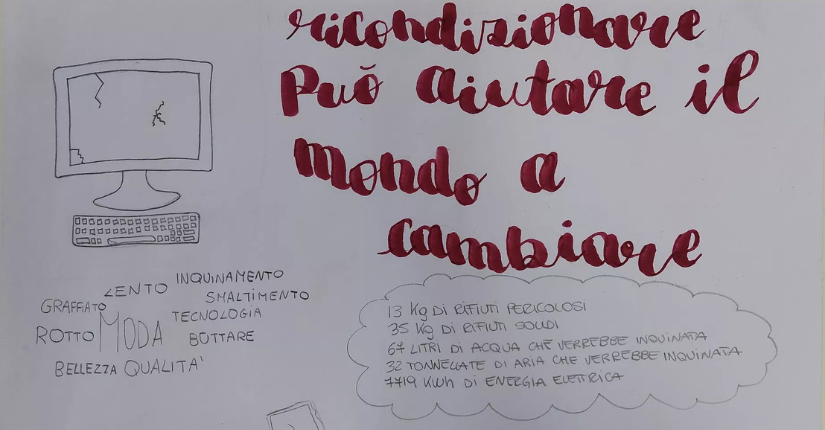 ricondizionare
Può aiutare il
mondo a
cambiare
LENTO INQUINAMENTO
GRAFFIATO SMALTIMENTO
TECNOLOGIA
ROTTO MODA BUTTARE
BELLEZZA QUALITA'
13 Kg DI RIFIUTI PERICOLOSI
35 Kg DI RIFIUTI SOLIDI
67 LITRI DI ACQUA CHE VERREBBE INQUINATA
32 TONNELLATE DI ARIA CHE VERREBBE INQUINATA
7719 KWh DI ENERGIA ELETTRICA